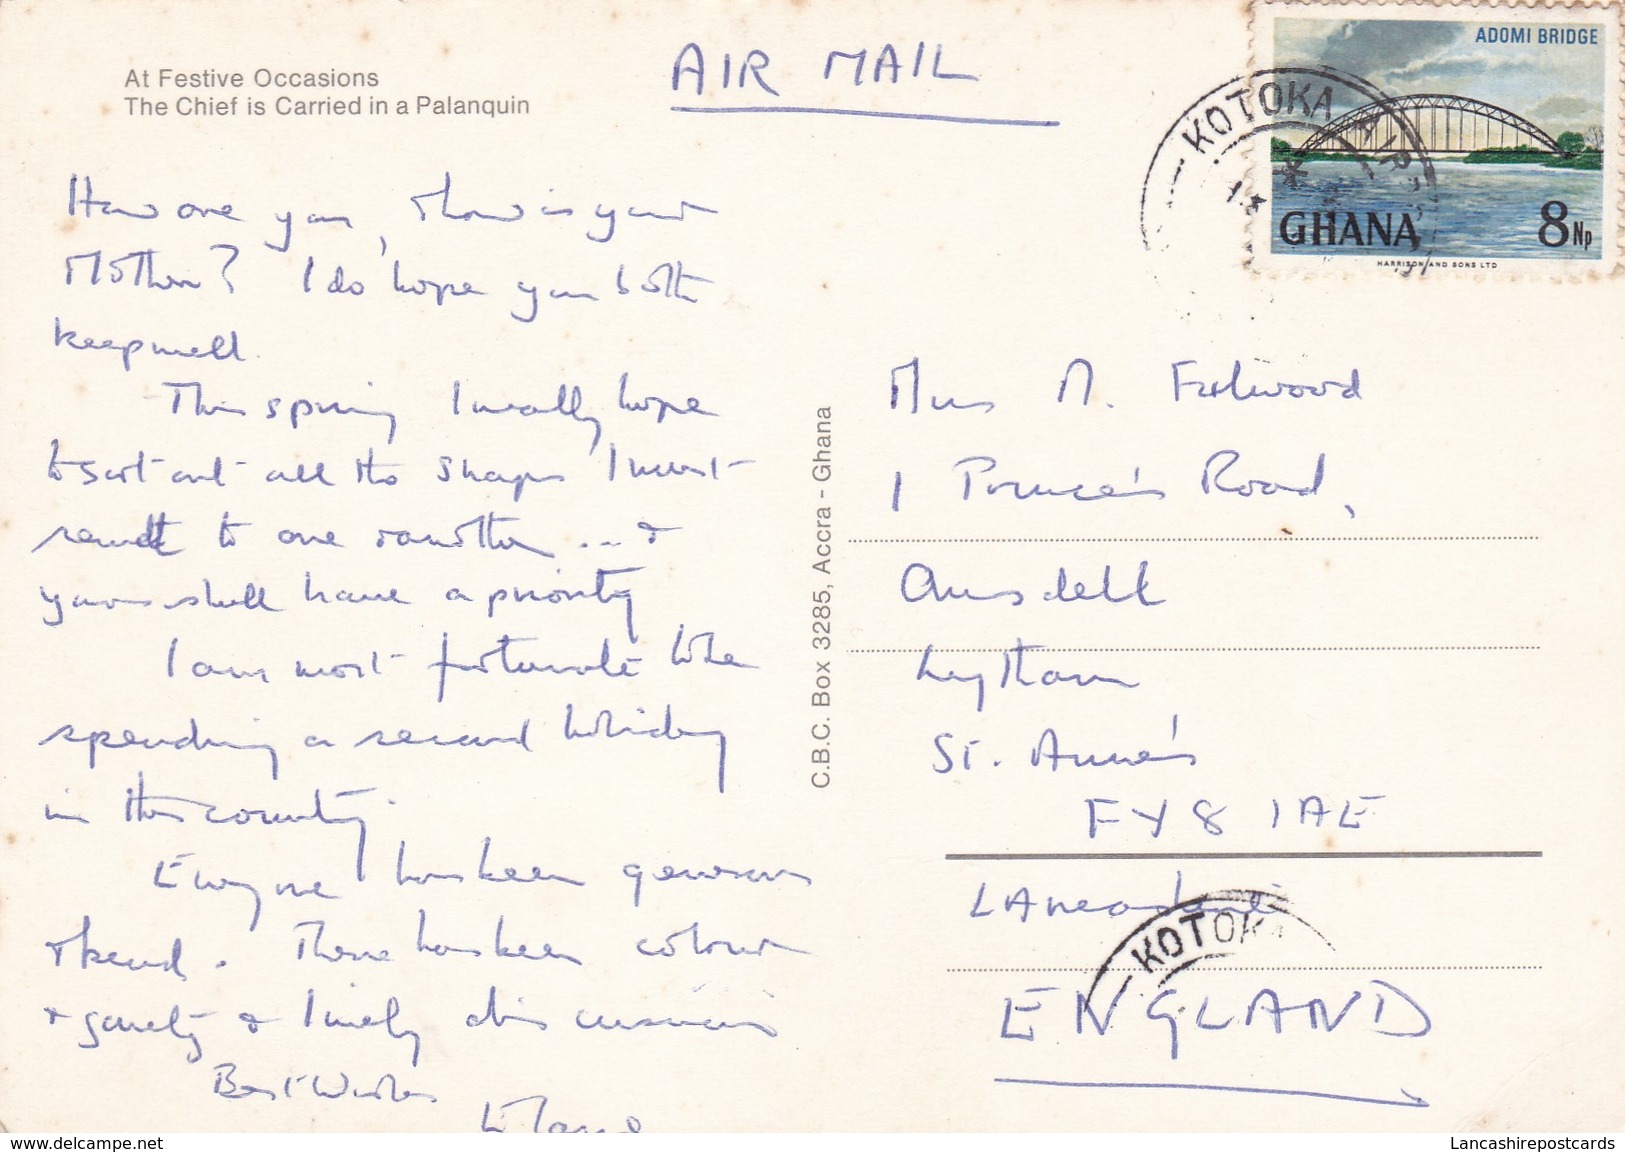 At Festive Occasions
The Chief is Carried in a Palanquin
AIR MAIL
ADOMI BRIDGE
GHANA 8Np
HARRISON AND SONS LTD
KOTOKA AIR
How are you, & how is your
Mother? I do hope you both
keep well.
This spring I really hope
to sort out all the snaps I must
send to one & another ... &
yours shall have a priority
I am most fortunate to be
spending a second holiday
in this country.
Everyone has been generous
& kind. There has been colour
& gaiety & lively discussions
Best Wishes
C.B.C. Box 3285, Accra - Ghana
M. Fulwood
1 Prince's Road,
Ansdell
Lytham
St. Anne's
FY8 1AE
Lancashire
KOTOKA
ENGLAND
www.delcampe.net
Lancashirepostcards